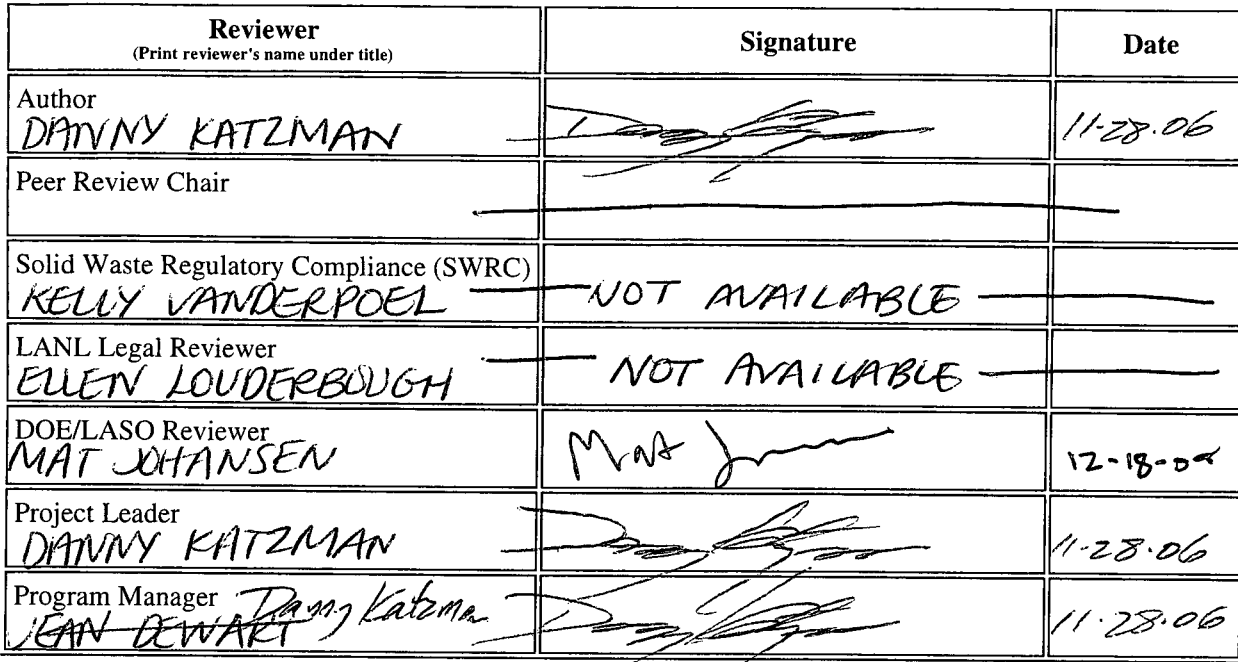 Reviewer Signature Date
(Print reviewer's name under title)
Author
DANNY KATZMAN 11-28-06
Peer Review Chair
Solid Waste Regulatory Compliance (SWRC)
KELLY VANDERPOEL NOT AVAILABLE
LANL Legal Reviewer
ELLEN LOUDERBOUGH NOT AVAILABLE
DOE/LASO Reviewer
MAT JOHANSEN Mat 12-18-06
Project Leader
DANNY KATZMAN 11-28-06
Program Manager Danny Katzman
JEAN DEWART 11-28-06